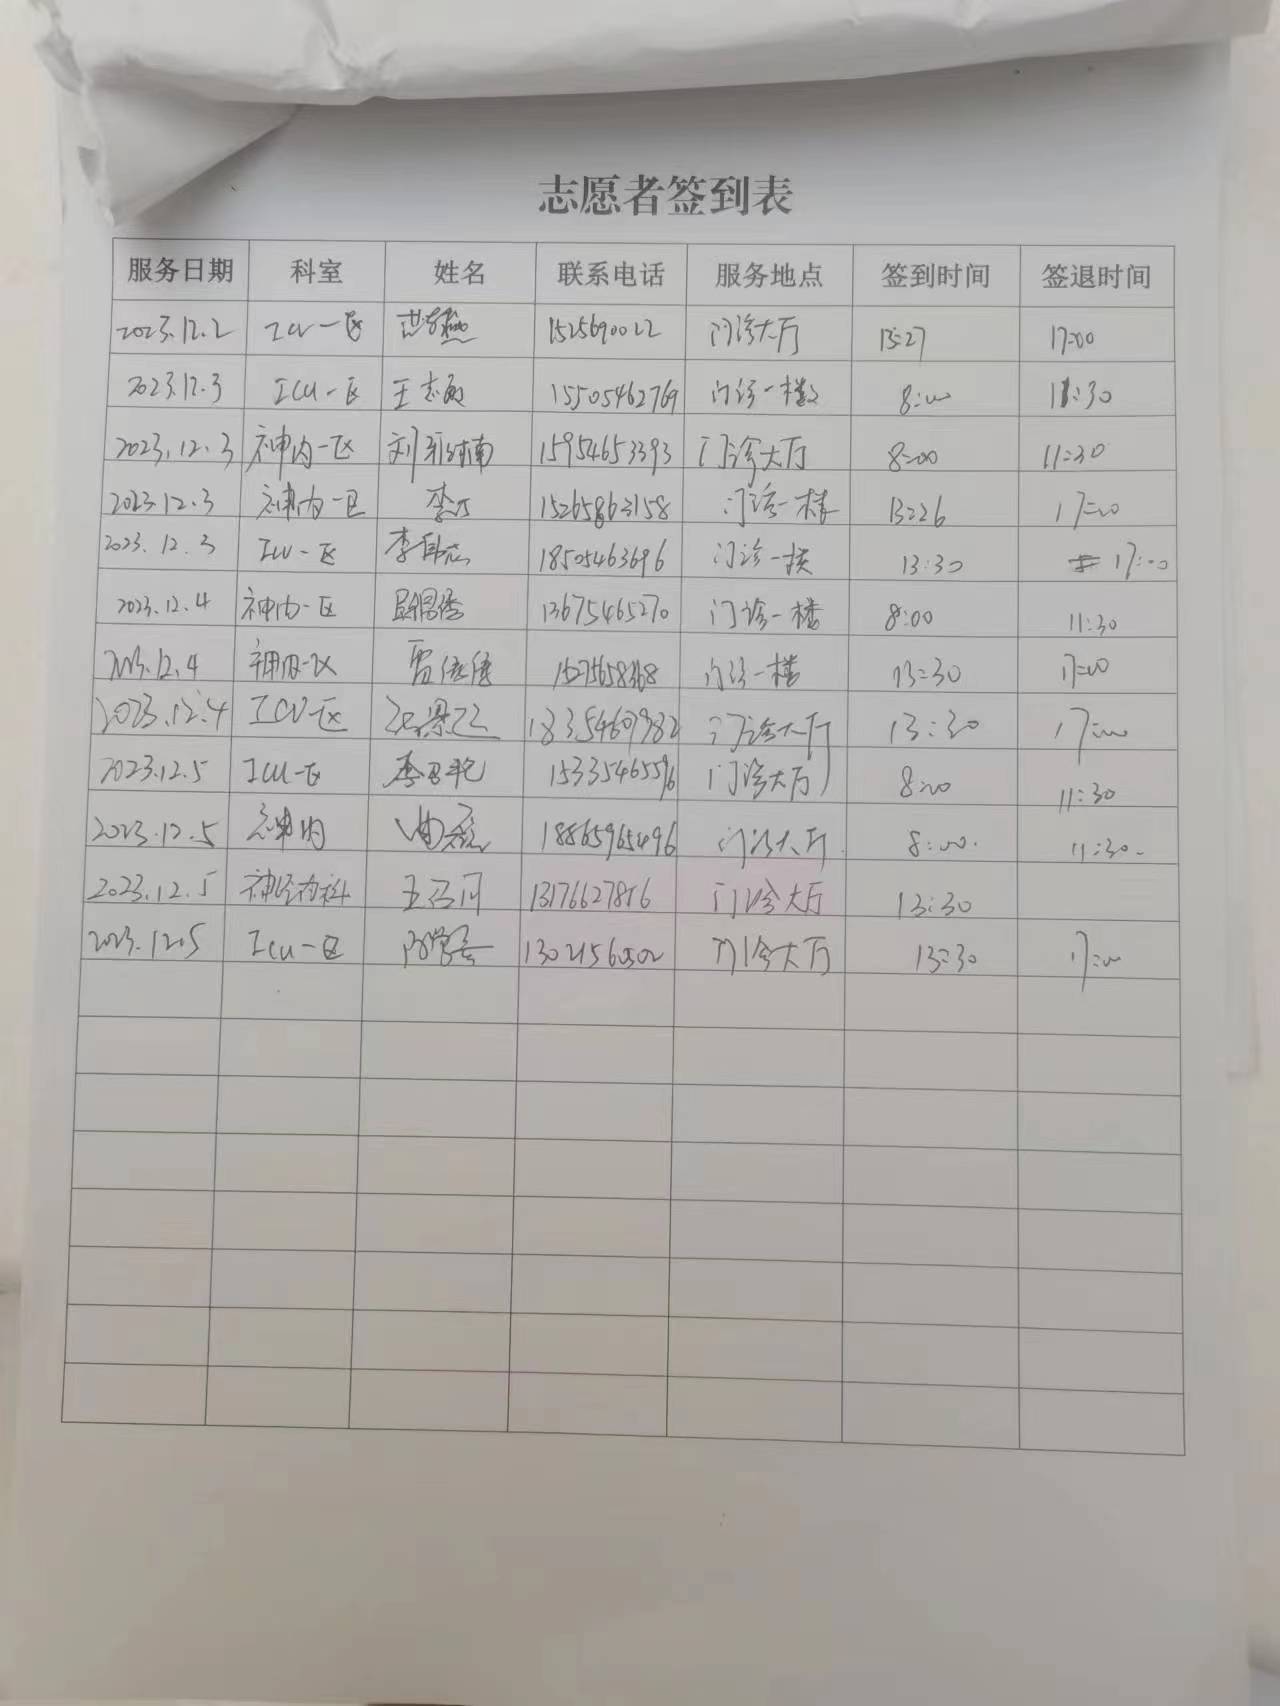 志愿者签到表
服务日期 科室 姓名 联系电话 服务地点 签到时间 签退时间
2023.12.2 ICU一区 1525690022 门诊大厅 13:27 17:00
2023.12.3 ICU一区 王志敏 15505462769 门诊一楼 8:00 11:30
2023.12.3 神内一区 刘 南 15954653393 门诊大厅 8:00 11:30
2023.12.3 神内一区 李 15265863158 门诊一楼 13:26 17:00
2023.12.3 ICU一区 李 18505463696 门诊一楼 13:30 17:00
2023.12.4 神内一区 13675465270 门诊一楼 8:00 11:30
2023.12.4 神内一区 门诊一楼 13:30 17:00
2023.12.4 ICU一区 18354609982 门诊大厅 13:30 17:00
2023.12.5 ICU一区 李 艳 15335465596 门诊大厅 8:00 11:30
2023.12.5 神内 18865965496 门诊大厅 8:00 11:30
2023.12.5 神经内科 13176627856 门诊大厅 13:30
2023.12.5 ICU一区 门诊大厅 13:30 17:00